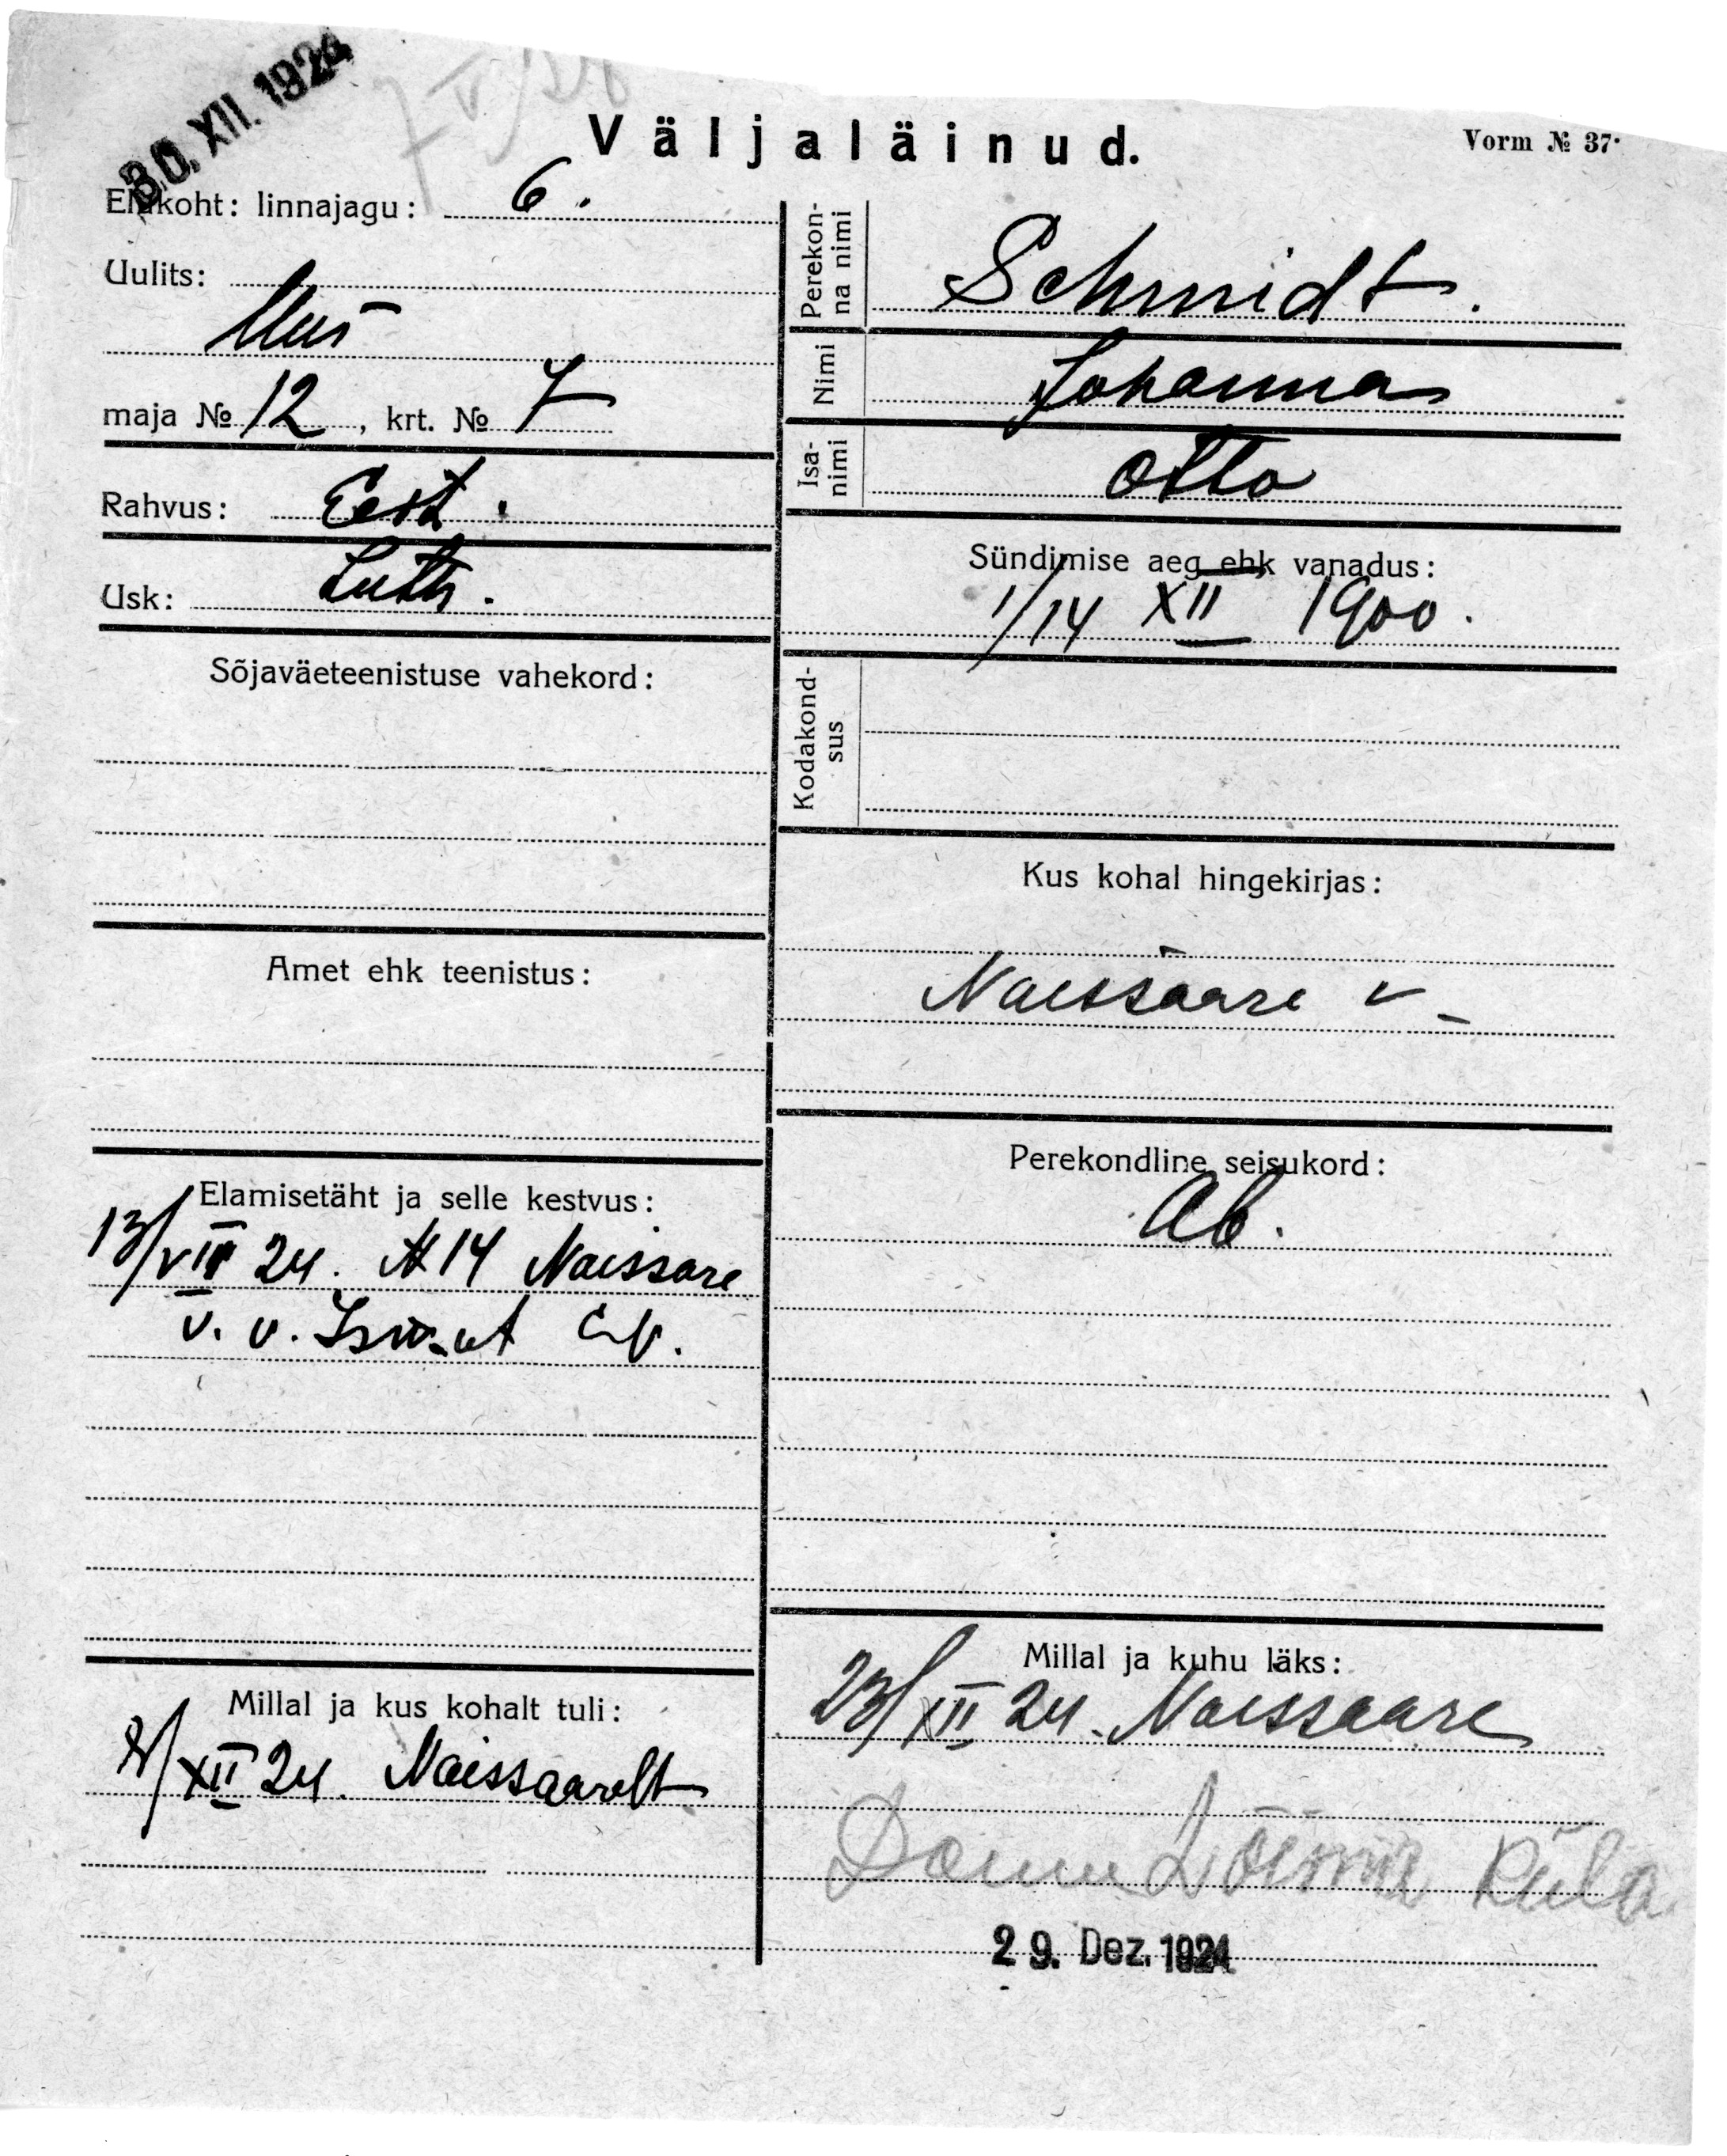 30. XII. 1924
Väljaläinud.
Vorm № 37·
Elukoht: linnajagu: 6.
Uulits:
Uus
maja № 12, krt. № 7
Rahvus: Eest.
Usk: Luth.
Sõjaväeteenistuse vahekord:
Amet ehk teenistus:
Elamisetäht ja selle kestvus:
13/VII 24. N 14 Naissare
v. v.
Millal ja kus kohalt tuli:
8/XII 24. Naissaarelt
Perekon-
na nimi
Schmidt.
Nimi
Johanna
Isa-
nimi
Otto
Sündimise aeg ehk vanadus:
1/14 XII 1900.
Kodakond-
sus
Kus kohal hingekirjas:
Naissaare v
Perekondline seisukord:
Ab.
Millal ja kuhu läks:
23/XII 24. Naissaare
küla
29. Dez. 1924